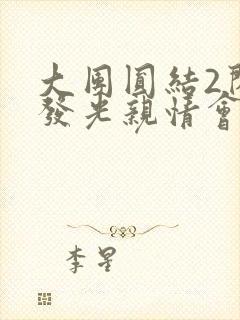 大團圓結2閃
發光親情會
李星